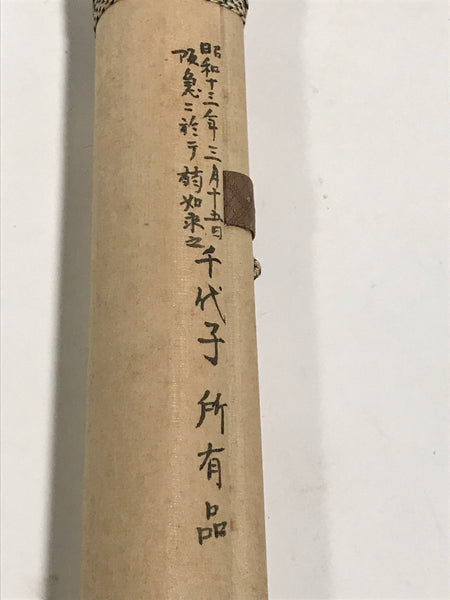 昭和十三年三月十五日
阪急ニ於テ 之
千代子 所有品